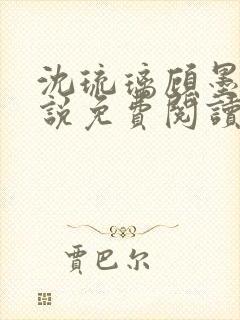 沈琉璃顾墨
說免費閱讀
賈巴尔